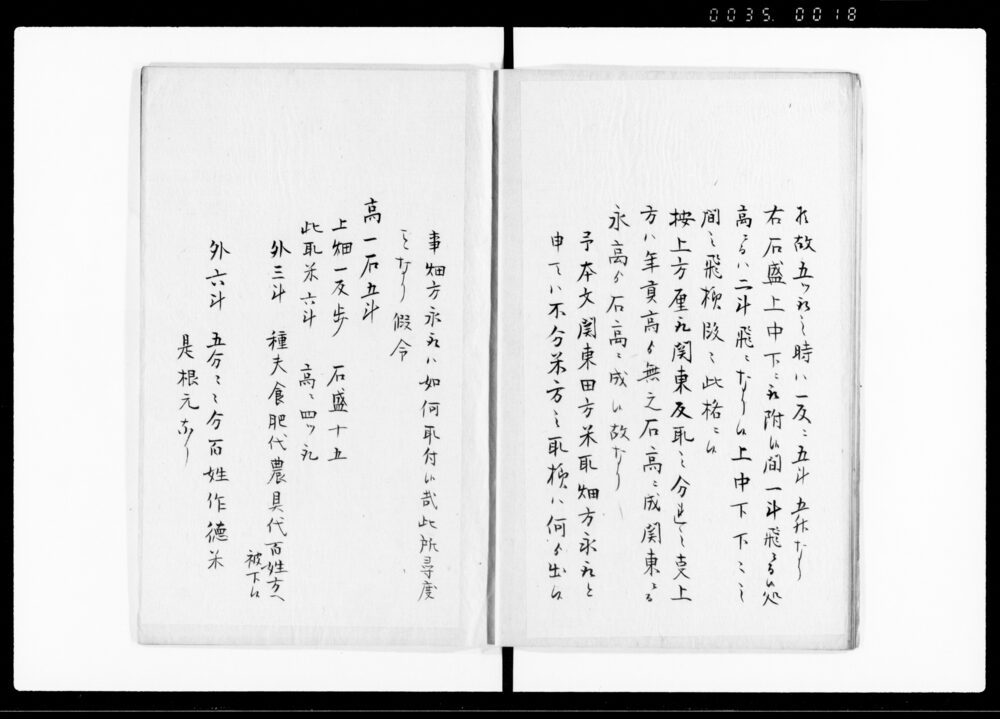 0035. 0018
故五ツ取之時ハ一反ニ五斗五升なり
右石盛上中下ニ取附候間一斗飛
高ニハ二斗飛ニなり候上中下下々ニ
間之飛様段々此格ニ候
按上方厘取関東反取之分
方ハ年貢高ゟ無之石高ニ成関東
永高ゟ石高ニ成候故なり
予本文関東田方米取畑方永取と
申てハ不分米方之取様ハ何ゟ出候
事畑方永取ハ如何取付候哉此所尋度
となり 假令
高一石五斗
上畑一反歩 石盛十五
此取米六斗 高ニ四ツ取
外三斗 種夫食肥代農具代百姓方へ
被下候
外六斗 五分々々分百姓作徳米
是根元なり